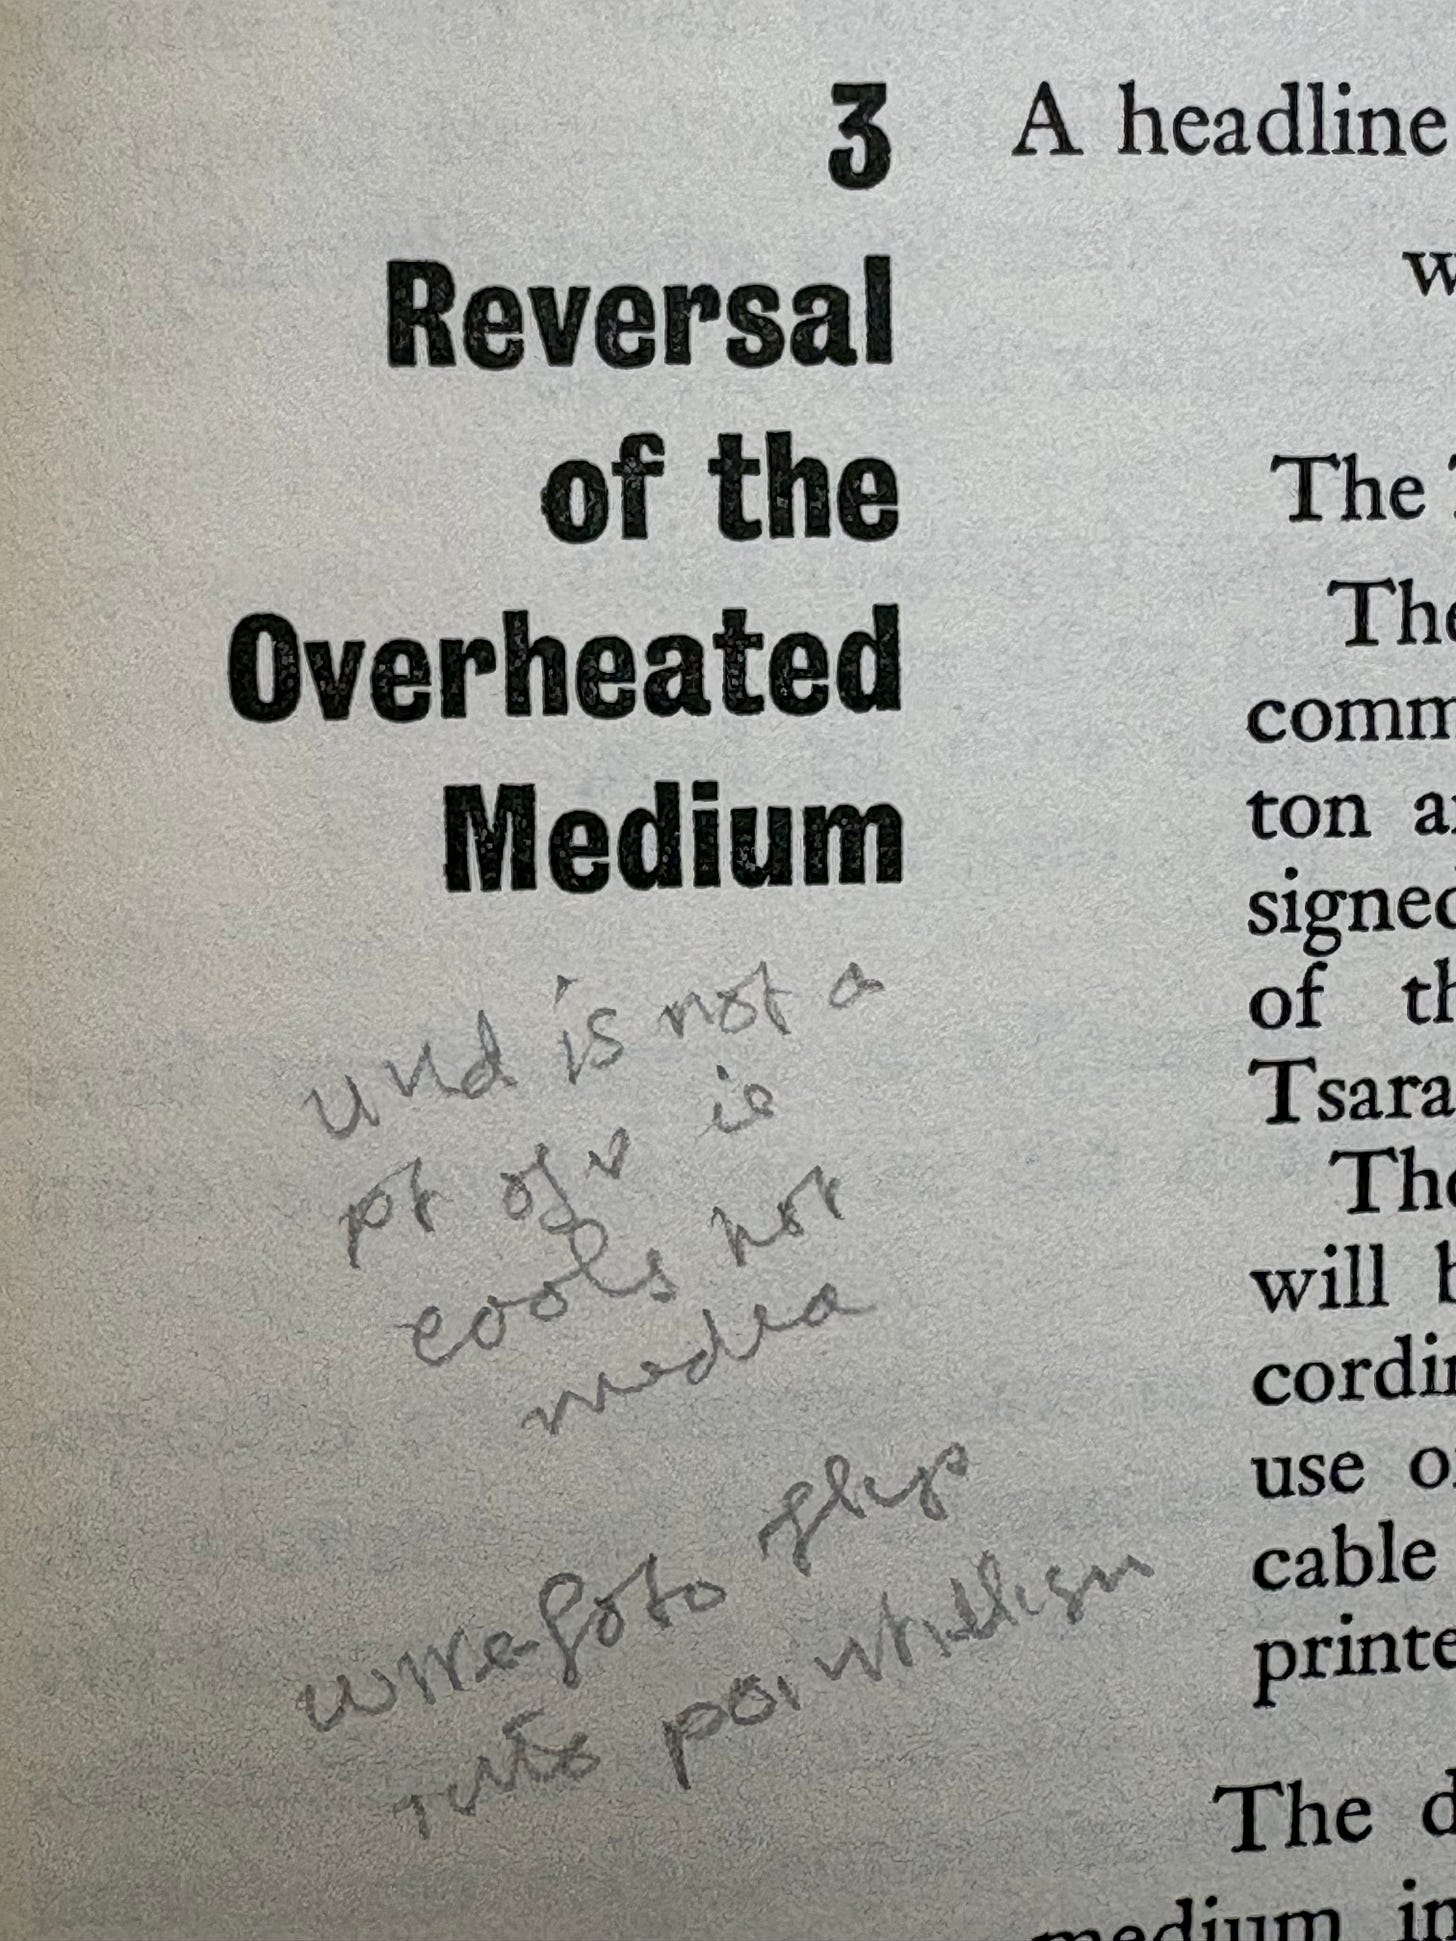 3
Reversal
of the
Overheated
Medium
A headline
w
The
The
comm
ton a
signed
of th
Tsara
The
will b
cordin
use o
cable
printe
The d
medium in
und is not a
pt of v ie
cools hot
media
wirefoto flips
into pointillism